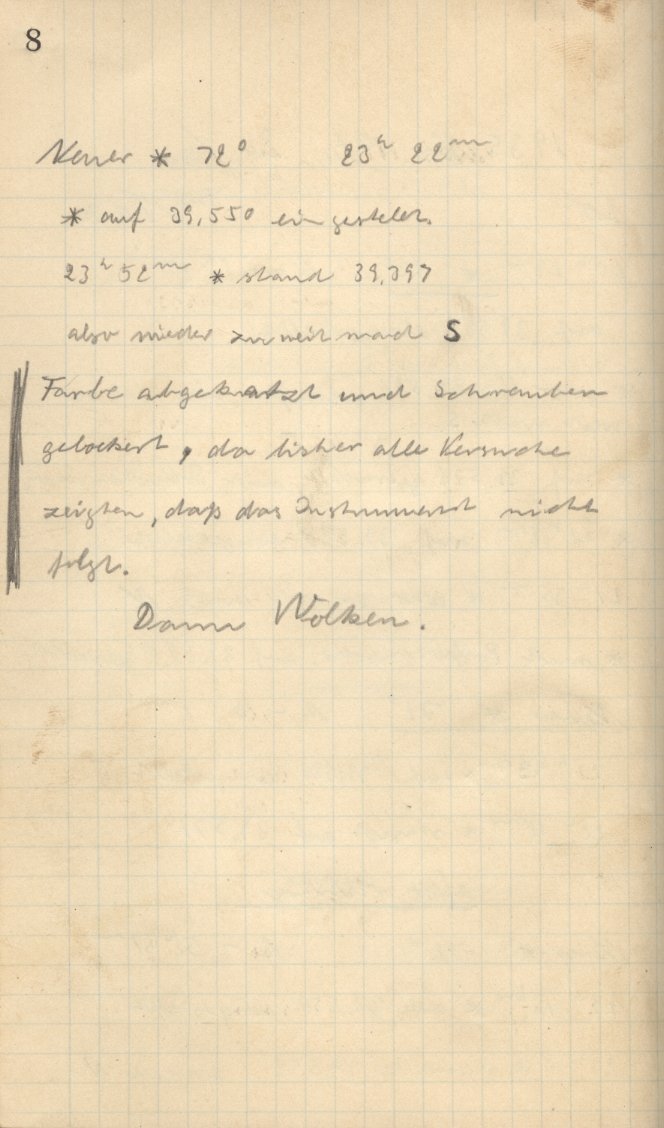 8
Neuer * 72° 23ʰ 22ᵐ
* auf 39,550 eingestellt.
23ʰ 52ᵐ * stand 39,397
also wieder zu weit nach S
Farbe abgekratzt und Schrauben
gelockert, da bisher alle Versuche
zeigten, daß das Instrument nicht
folgt.
Dann Wolken.